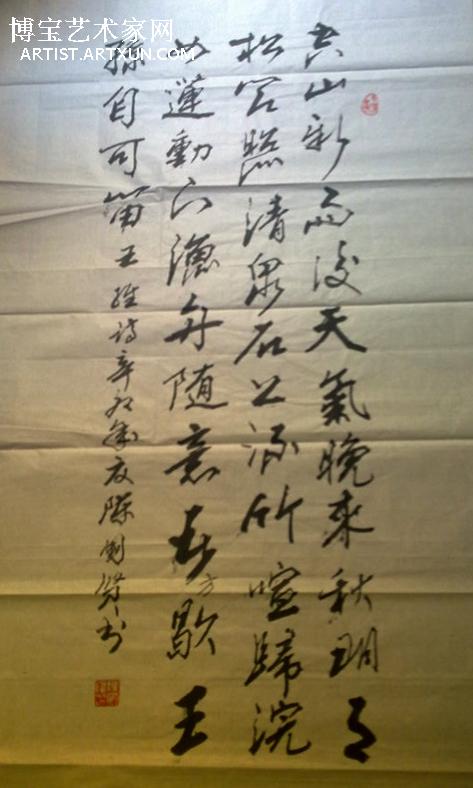 博宝艺术家网
ARTIST.ARTXUN.COM
空山新雨後天氣晚來秋明月
松间照清泉石上流竹喧歸浣
女蓮動下漁舟随意春方歇王
孫自可留王維诗辛卯